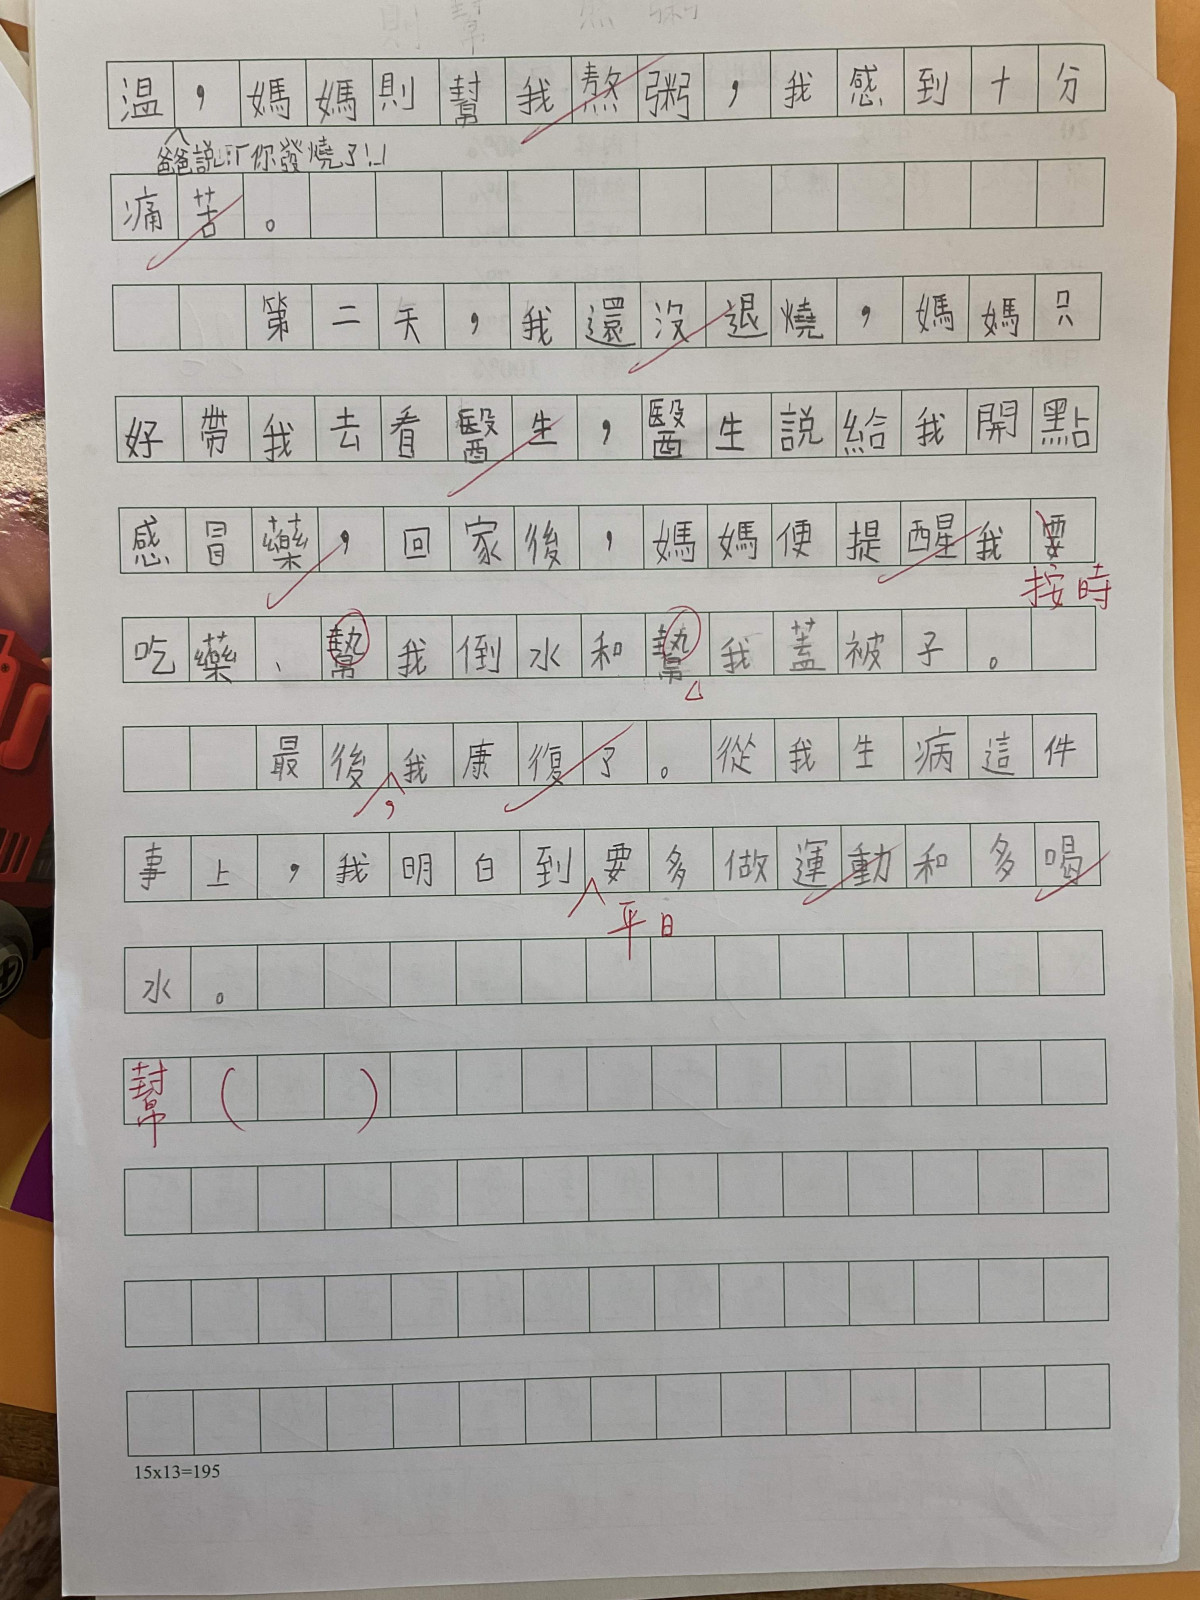 則 幫 熬 粥
溫，媽媽則幫我熬粥，我感到十分
爸爸說：「你發燒了！」
痛苦。
第二天，我還沒退燒，媽媽只
好帶我去看醫生，醫生說給我開點
感冒藥，回家後，媽媽便提醒我要
按時
吃藥、幫我倒水和幫我蓋被子。
最後我康復了。從我生病這件
，
事上，我明白到要多做運動和多喝
平日
水。
幫（ ）
15x13=195